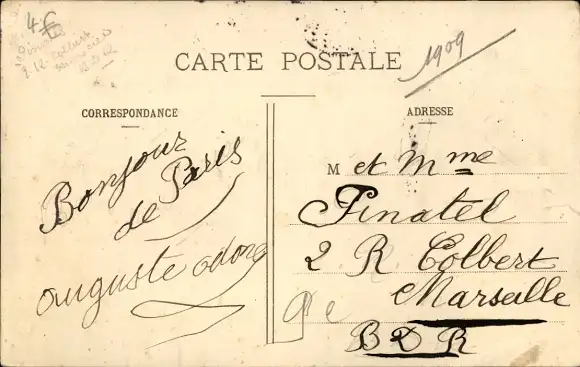 4F
1909
CARTE POSTALE
CORRESPONDANCE
Bonjour
de Paris
auguste odore
ADRESSE
M et Mme
Finatel
2 R Colbert
Marseille
B D R